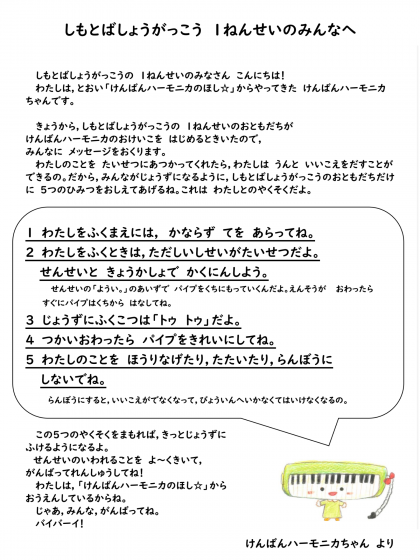 しもとばしょうがっこう 1ねんせいのみんなへ
しもとばしょうがっこうの 1ねんせいのみなさん こんにちは!
わたしは,とおい「けんばんハーモニカのほし☆」からやってきた けんばんハーモニカ
ちゃんです。
きょうから,しもとばしょうがっこうの 1ねんせいのおともだちが
けんばんハーモニカのおけいこを はじめるときいたので,
みんなに メッセージをおくります。
わたしのことを たいせつにあつかってくれたら,わたしは うんと いいこえをだすことが
できるの。だから,みんながじょうずになるように,しもとばしょうがっこうのおともだちだけ
に 5つのひみつをおしえてあげるね。これは わたしとのやくそくだよ。
1 わたしをふくまえには, かならず てを あらってね。
2 わたしをふくときは,ただしいしせいがたいせつだよ。
せんせいと きょうかしょで かくにんしよう。
せんせいの「ようい。」のあいずで パイプをくちにもっていくんだよ。えんそうが おわったら
すぐにパイプはくちから はなしてね。
3 じょうずにふくこつは「トゥ トゥ」だよ。
4 つかいおわったら パイプをきれいにしてね。
5 わたしのことを ほうりなげたり,たたいたり,らんぼうに
しないでね。
らんぼうにすると,いいこえがでなくなって,びょういんへいかなくてはいけなくなるの。
この5つのやくそくをまもれば,きっとじょうずに
ふけるようになるよ。
せんせいのいわれることを よ〜くきいて,
がんばってれんしゅうしてね!
わたしは,「けんばんハーモニカのほし☆」から
おうえんしているからね。
じゃあ,みんな,がんばってね。
バイバーイ!
けんばんハーモニカちゃん より